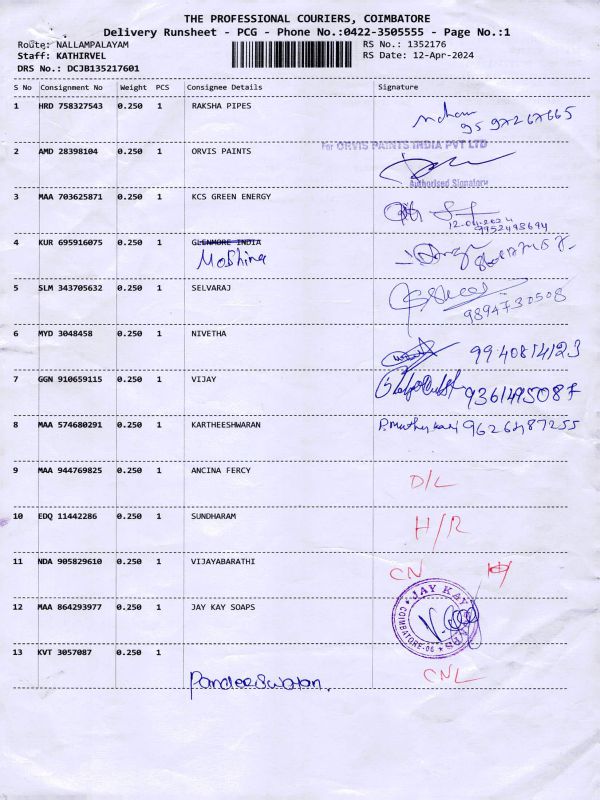 THE PROFESSIONAL COURIERS, COIMBATORE
Delivery Runsheet - PCG - Phone No.:0422-3505555 - Page No.:1
Route: NALLAMPALAYAM RS No.: 1352176
Staff: KATHIRVEL RS Date: 12-Apr-2024
DRS No.: DCJB135217601
S No Consignment No Weight PCS Consignee Details Signature
1 HRD 758327543 0.250 1 RAKSHA PIPES
For ORVIS PAINTS INDIA PVT LTD
2 AMD 28398104 0.250 1 ORVIS PAINTS
Authorised Signatory
3 MAA 703625871 0.250 1 KCS GREEN ENERGY
9952498694
4 KUR 695916075 0.250 1 GLENMORE INDIA
Moshina
5 SLM 343705632 0.250 1 SELVARAJ
9894730508
6 MYD 3048458 0.250 1 NIVETHA 9940814123
7 GGN 910659115 0.250 1 VIJAY
8 MAA 574680291 0.250 1 KARTHEESHWARAN
9 MAA 944769825 0.250 1 ANCINA FERCY D/L
10 EDQ 11442286 0.250 1 SUNDHARAM H/R
11 NDA 905829610 0.250 1 VIJAYABARATHI CN
12 MAA 864293977 0.250 1 JAY KAY SOAPS JAY KAY COIMBATORE-06
13 KVT 3057087 0.250 1 CNL
Pandeeswaran.